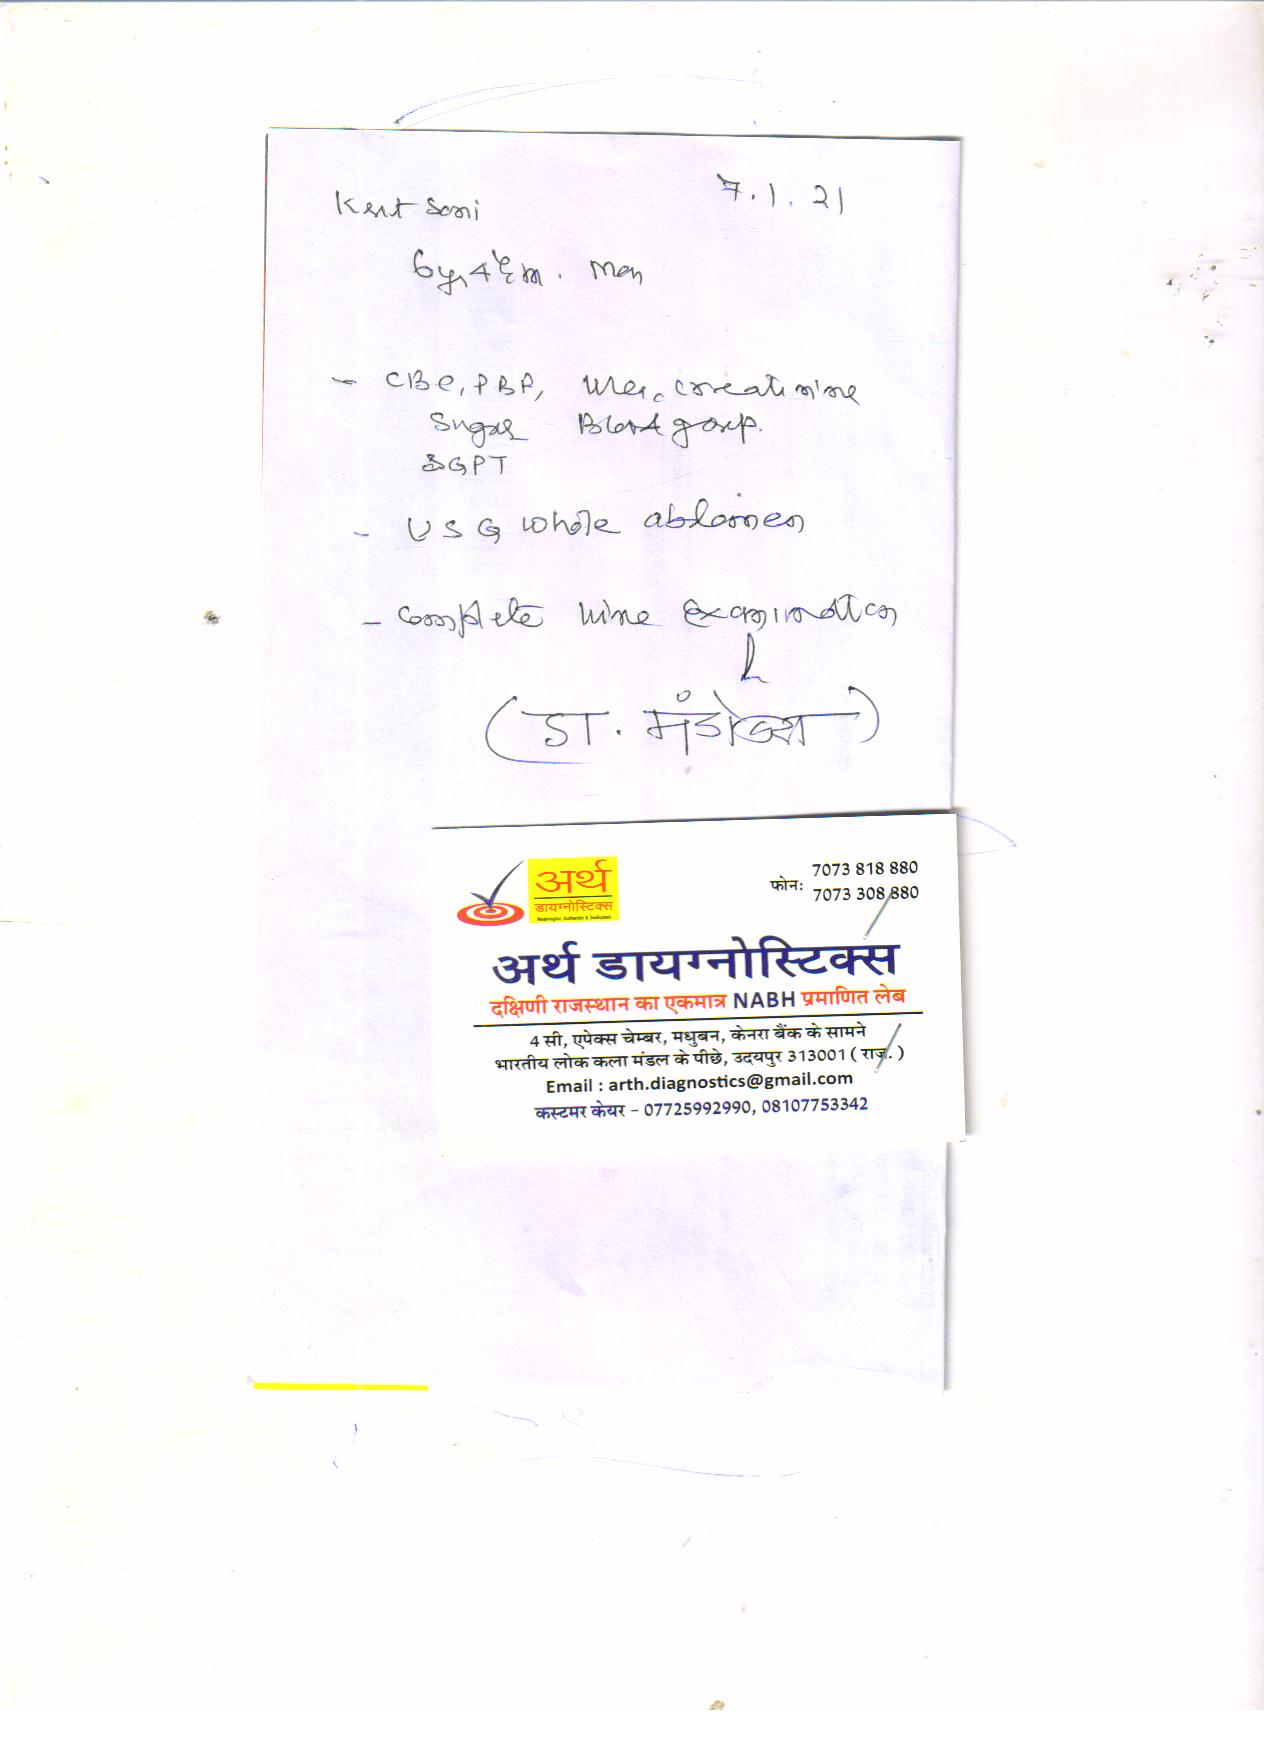 Kent Soni
7.1.21
6yr 4
- CBC, PBF, Urea, creatinine
Sugar Blood group.
SGPT
- USG whole abdomen
- complete urine Examination
(डा.
अर्थ
डायग्नोस्टिक्स
Meaningful, Authentic & Dedicated
फोन: 7073 818 880
7073 308 880
अर्थ डायग्नोस्टिक्स
दक्षिणी राजस्थान का एकमात्र NABH प्रमाणित लेब
4 सी, एपेक्स चेम्बर, मधुबन, केनरा बैंक के सामने
भारतीय लोक कला मंडल के पीछे, उदयपुर 313001 ( राज. )
Email : arth.diagnostics@gmail.com
कस्टमर केयर – 07725992990, 08107753342